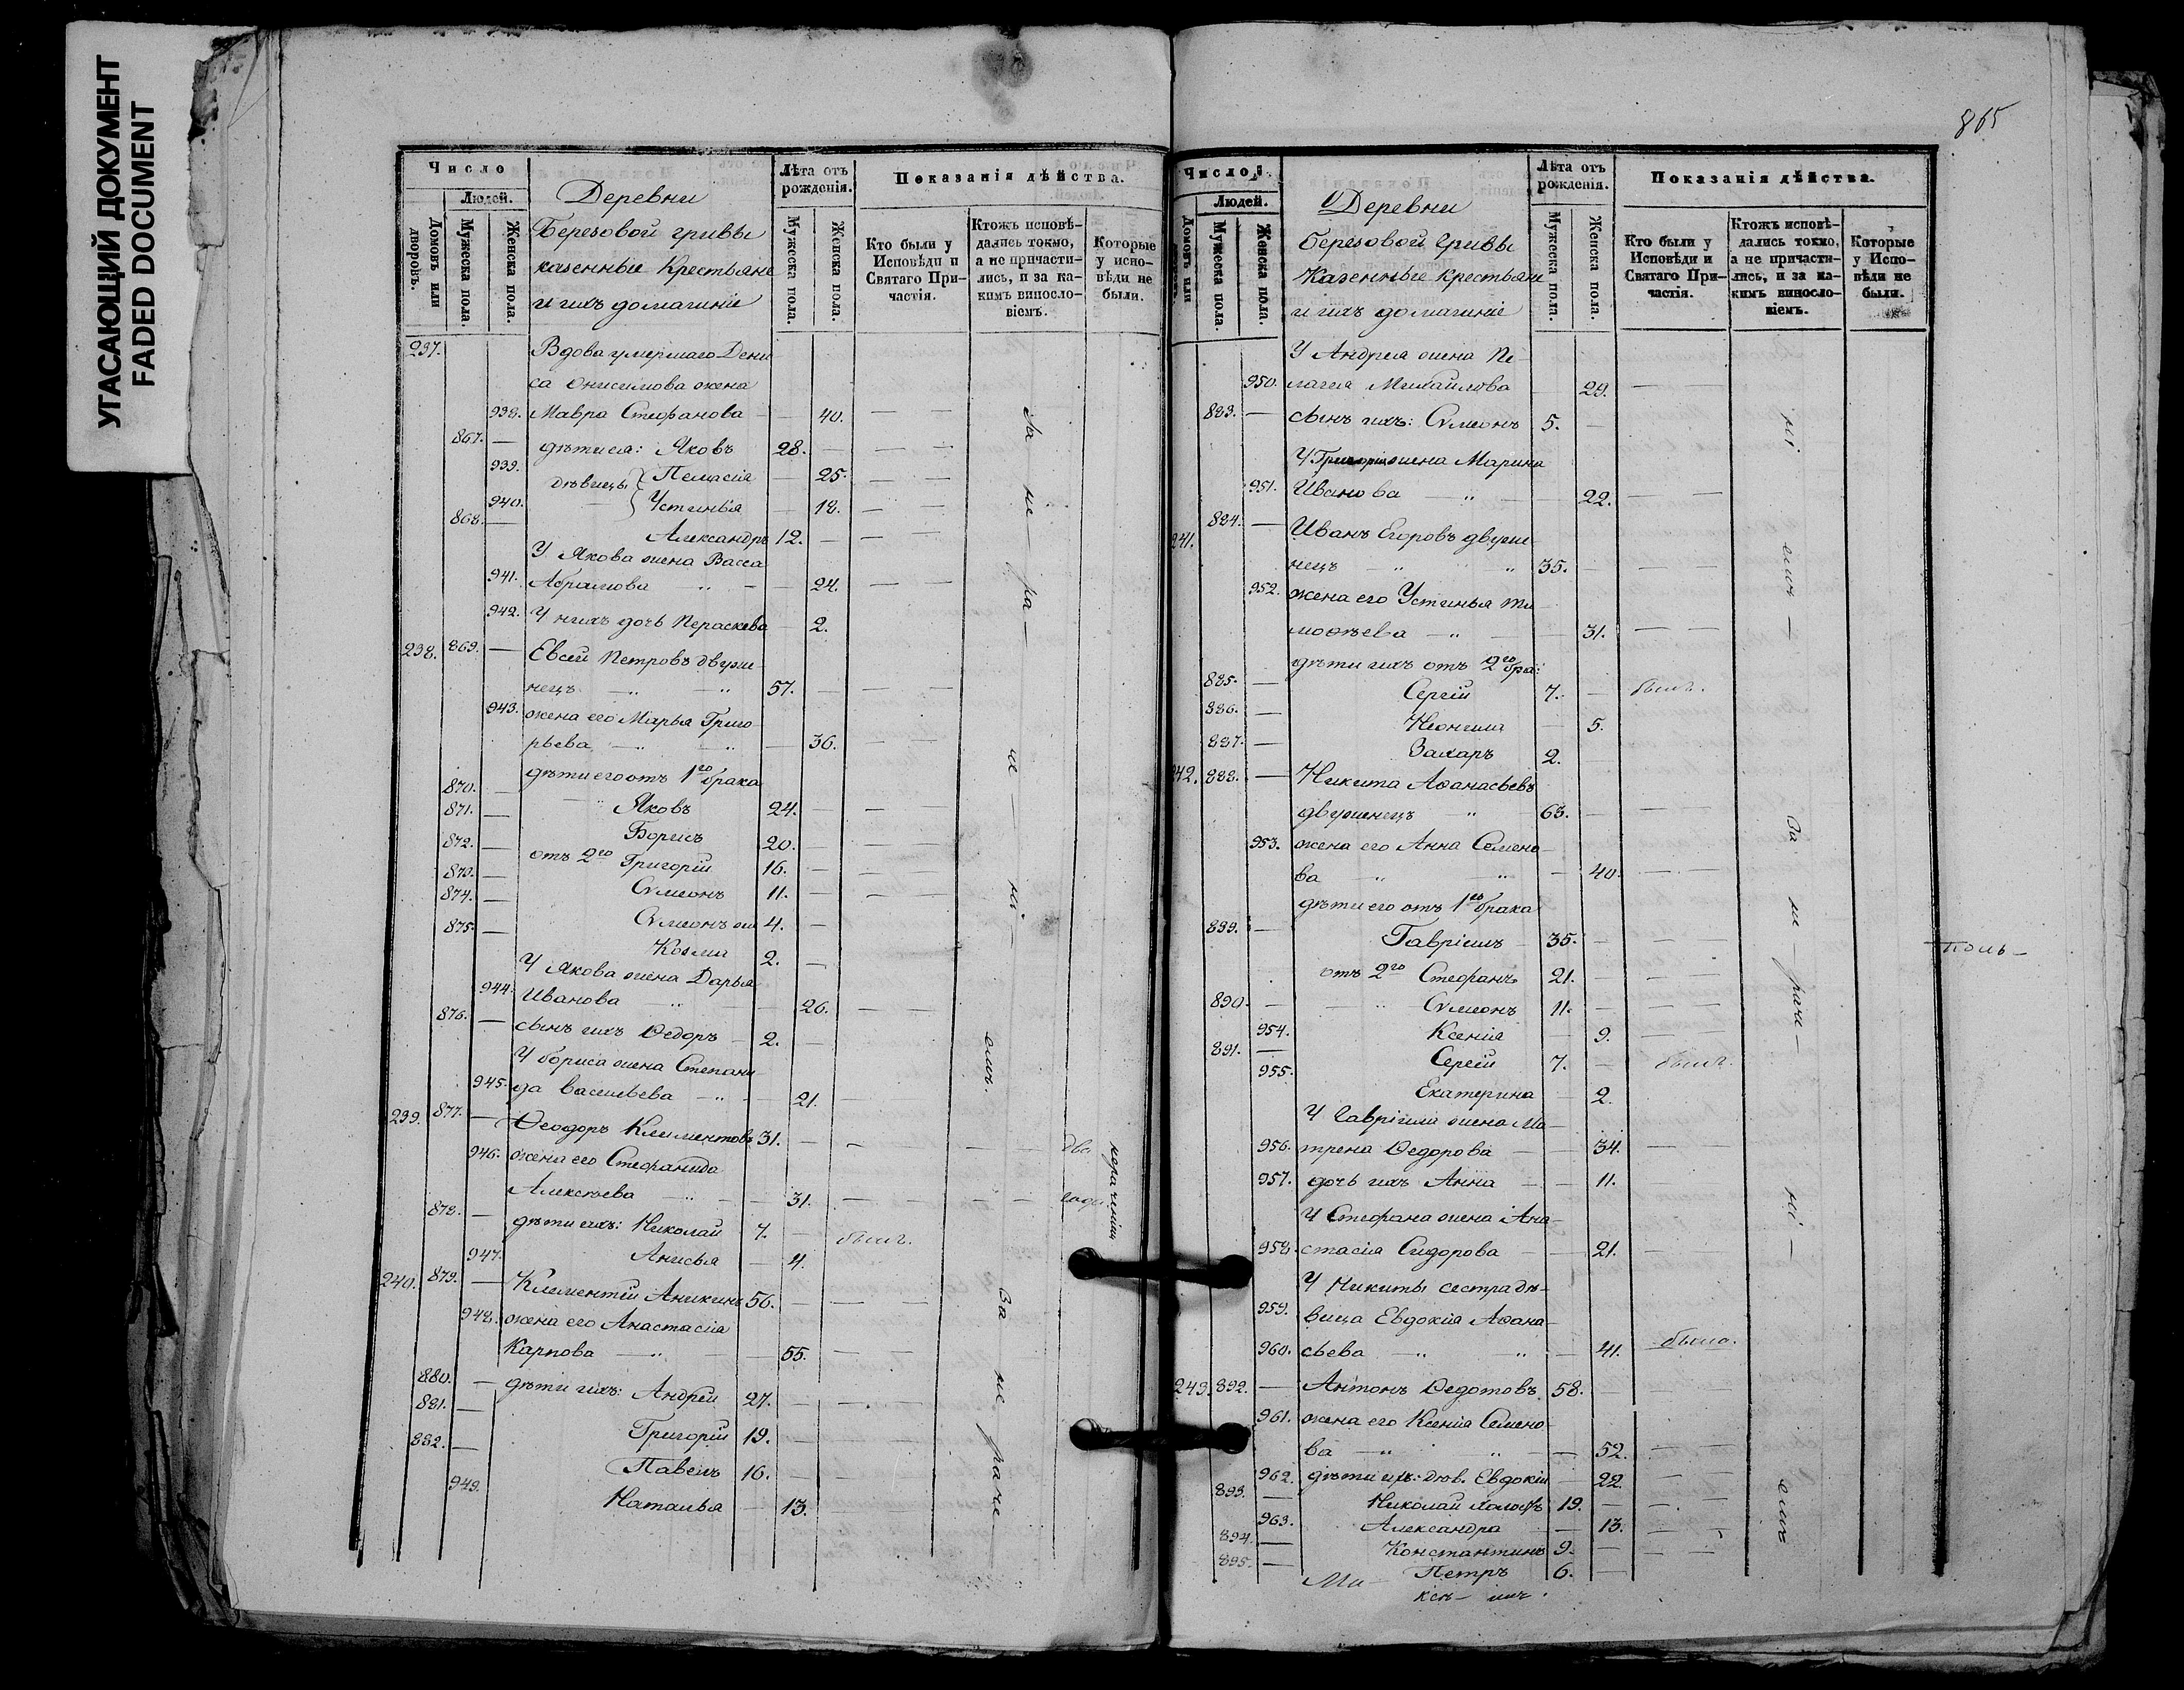 УГАСАЮЩИЙ ДОКУМЕНТ
FADED DOCUMENT
Число
Людей.
Домовъ или дворовъ.
Мужеска пола.
Женска пола.
Деревни
Березовой гривы
казенные Крестьяне
и ихъ домашніе
Лѣта отъ рожденія.
Мужеска пола.
Женска пола.
Показанія дѣйства.
Кто были у Исповѣди и Святаго Причастія.
Ктожъ исповѣдались токмо, а не причастились, и за какимъ винословіемъ.
Которые у исповѣди не были.
237. Вдова умершаго Дени
са Онисимова жена
938. Мавра Стефанова 40.
867. дѣти ея: Яковъ 28.
939. дѣвицы Пелагія 25.
940. Устинья 18.
868. Александръ 12.
У Якова жена Васса
941. Абрамова 24.
942. У нихъ дочь Параскева 2.
238. 869. Евсей Петровъ двуже
нецъ 57.
943. жена его Марья Григо
рьева 36.
дѣти его отъ 1го брака
870.
871. Яковъ 24.
872. Борисъ 20.
873. отъ 2го Григорій 16.
874. Сѵмеонъ 11.
875. Сѵмеонъ 4.
Козма 2.
У Якова жена Дарья
944. Иванова 26.
876. сынъ ихъ Ѳедоръ 2.
У Бориса жена Степани
945. да Васильева 21.
239. 877. Ѳеодоръ Климентовъ 31.
946. жена его Стефанида
Алексѣева 31.
878. дѣти ихъ: Николай 7. былъ.
947. Анисья 4.
240. 879. Климентій Аникинъ 56.
948. жена его Анастасія
Карпова 55.
880. дѣти ихъ: Андрей 27.
881. Григорій 19.
882. Павелъ 16.
949. Наталья 13.
два
года
865
Число
Людей.
Домовъ или
Мужеска пола.
Женска пола.
Деревни
Березовой Гривы
Казенные крестьяне
и ихъ домашніе
Лѣта отъ рожденія.
Мужеска пола.
Женска пола.
Показанія дѣйства.
Кто были у Исповѣди и Святаго Причастія.
Ктожъ исповѣдались токмо, а не причастились, и за какимъ винословіемъ.
Которые у Исповѣди не были.
У Андрея жена Пе
950. лагея Михайлова 29.
883. сынъ ихъ: Сѵмеонъ 5.
У Григорія жена Марина
951. Иванова 22.
241. 884. Иванъ Егоровъ двуже
нецъ 35.
952. жена его Устинья Ти
моѳѣева 31.
дѣти ихъ отъ 2го бра:
885. Сергій 7. былъ.
886. Неонила 5.
887. Захаръ 2.
242. 888. Никита Аѳанасьевъ
двуженецъ 63.
953. жена его Анна Семено
ва 40.
дѣти его отъ 1го брака
889. Гавріилъ 35.
отъ 2го Стефанъ 21.
890. Сѵмеонъ 11.
954. Ксенія 9.
891. Сергій 7. былъ.
955. Екатерина 2.
У Гавріила жена Ма
956. трена Ѳедорова 34.
957. дочь ихъ Анна 11.
У Стефана жена Ана
958. стасія Сидорова 21.
У Никиты сестра дѣ
959. вица Евдокія Аѳана
960. сьева 41. была.
243. 892. Антонъ Ѳедотовъ 58.
961. жена его Ксенія Семено
ва 52.
962. дѣти ихъ: дѣв. Евдокія 22.
893. Николай холостъ 19.
963. Александра 13.
894. Константинъ 9.
895. Петръ 6.